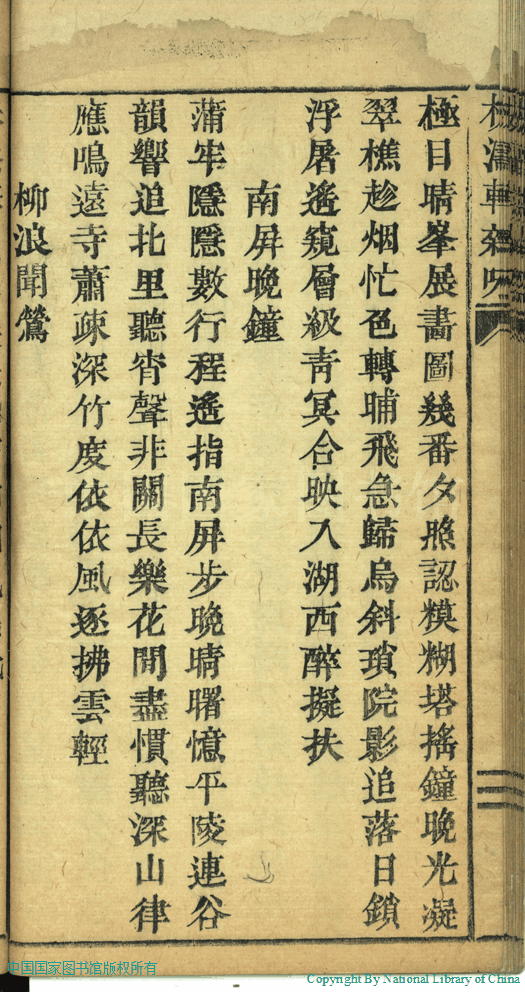 極目晴峯展畵圖幾番夕照認糢糊塔搖鐘晩光凝
翠樵趁烟忙色轉晡飛急歸烏斜瑣院影追落日鎖
浮屠遙窺層級靑冥合映入湖西醉擬扶
南屏晚鐘
蒲牢隱隱數行程遙指南屏步晚晴曙憶平陵連谷
韻響追北里聽宵聲非關長樂花閒盡慣聽深山律
應鳴遠寺蕭疎深竹度依依風逐拂雲輕
柳浪聞鶯
中国国家图书馆版权所有
Copyright By National Library of China